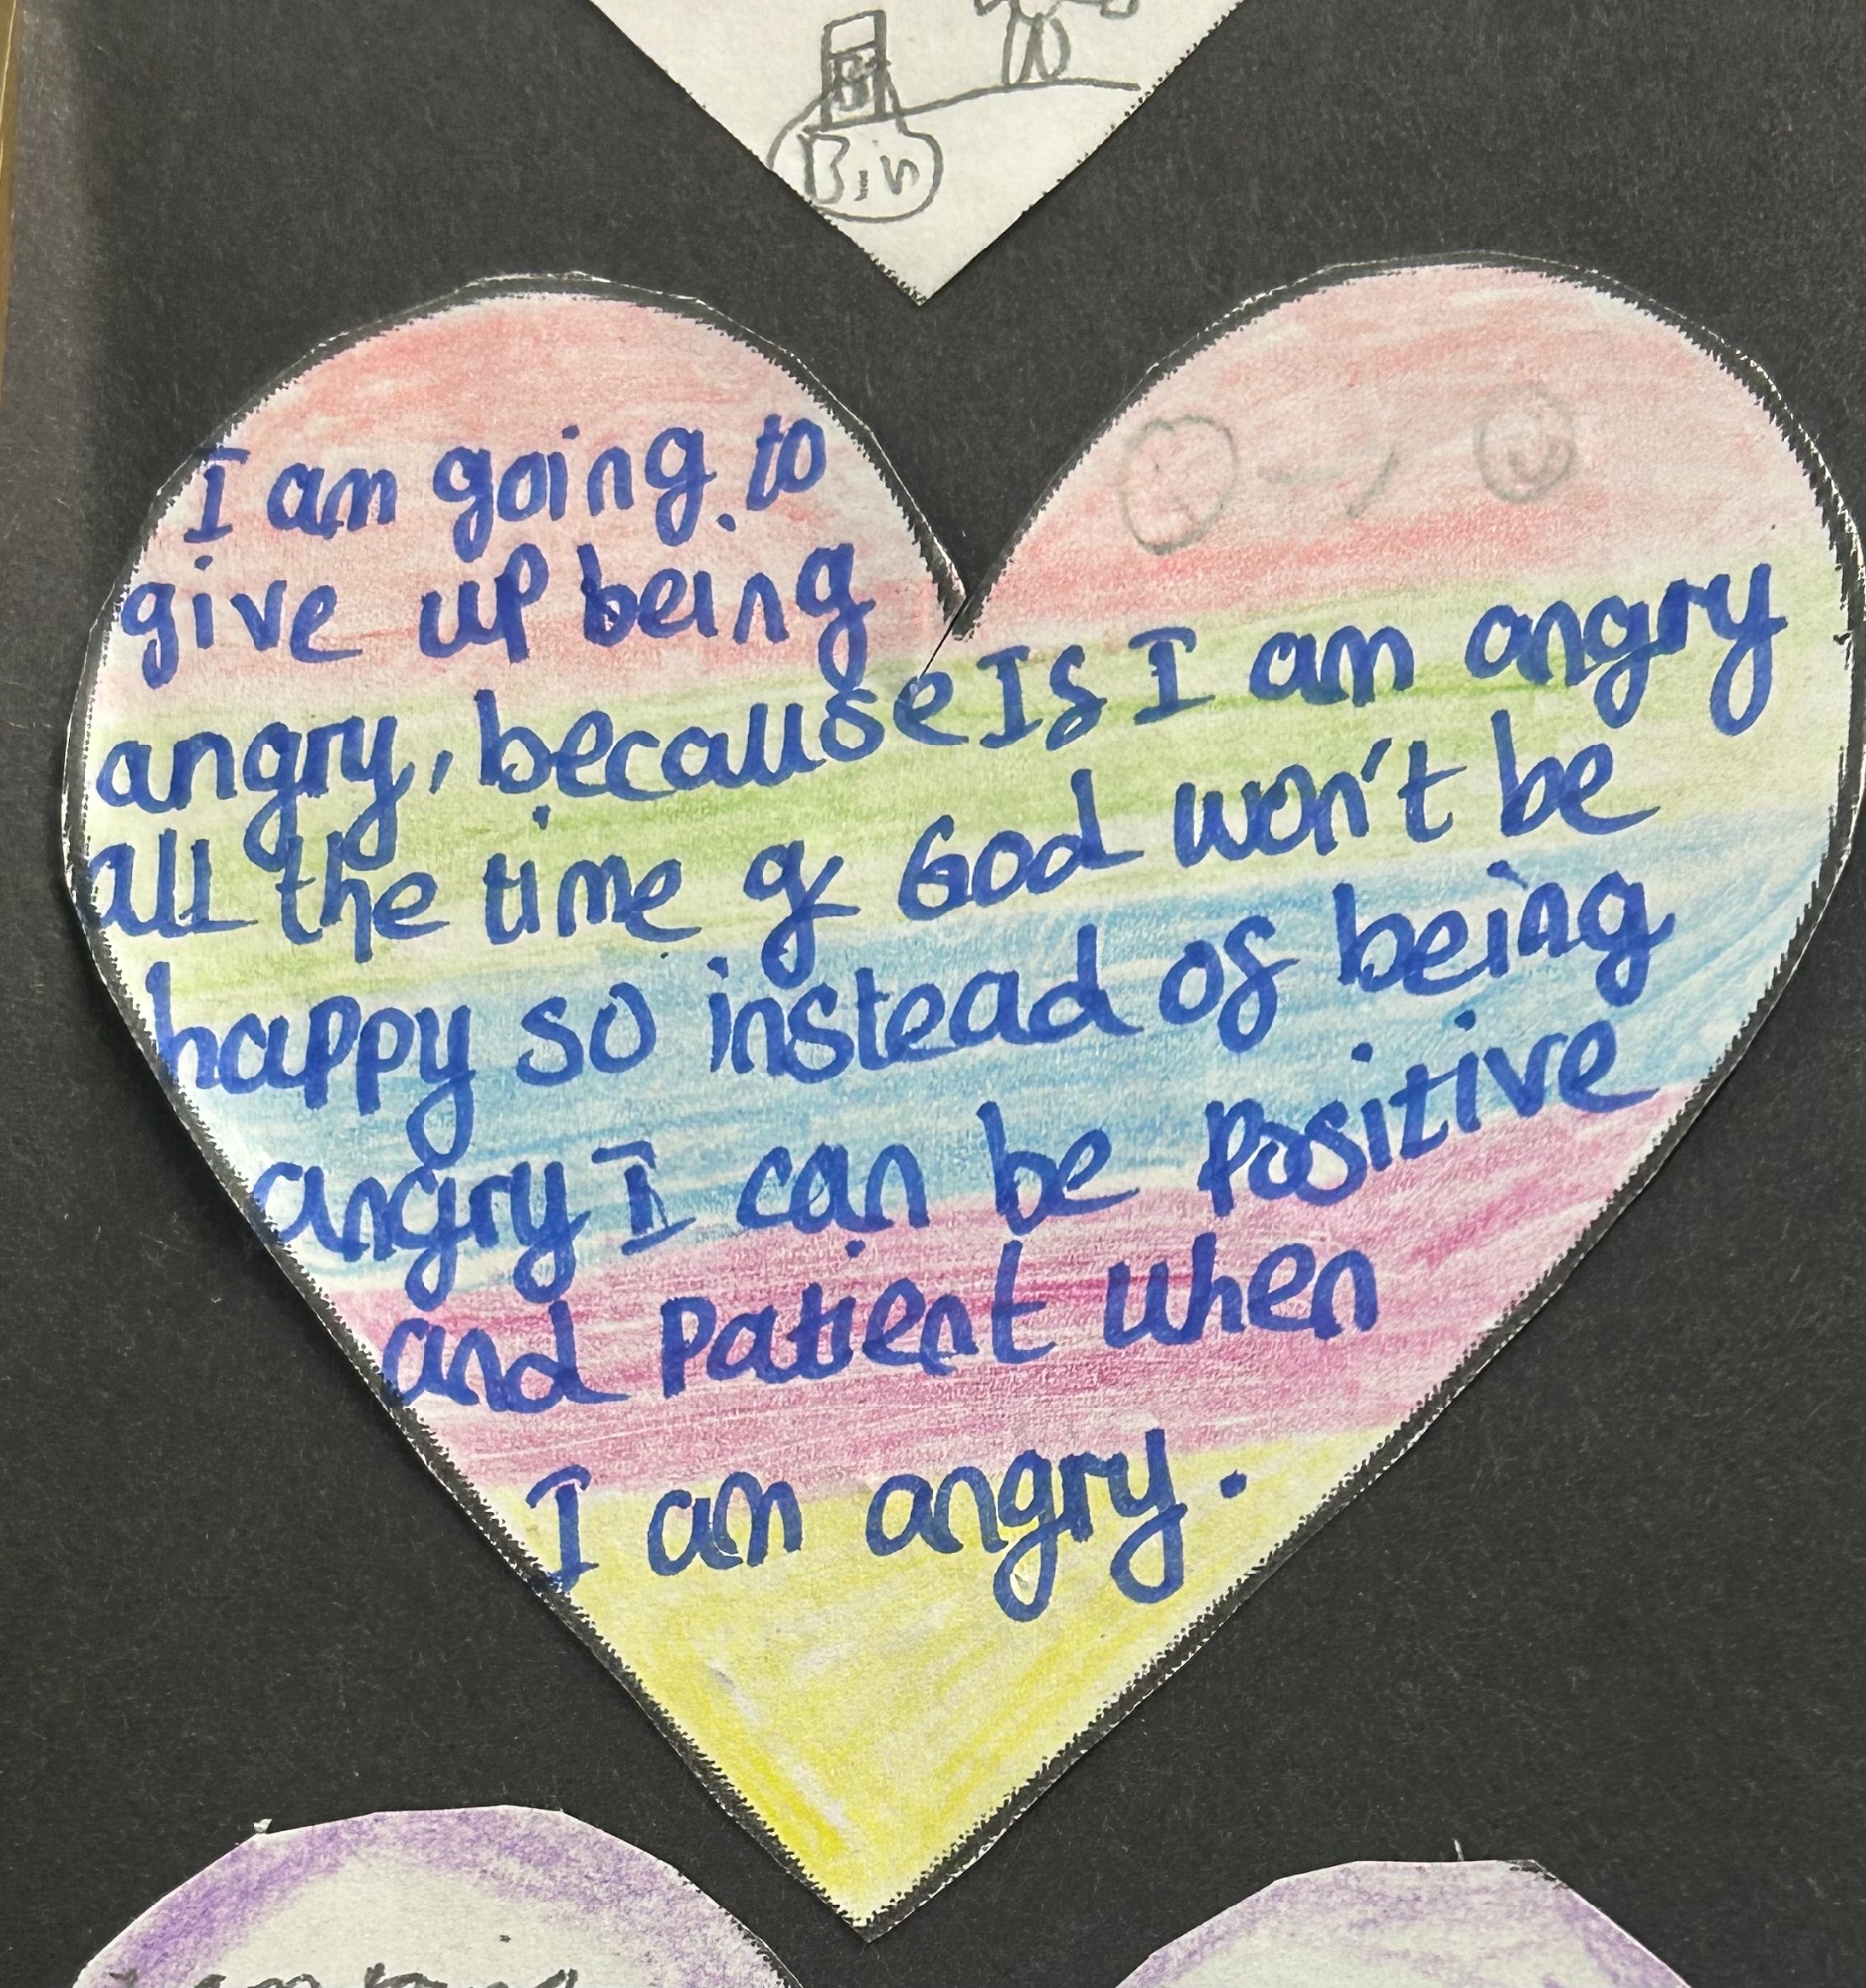 Bin
I am going to
give up being
angry, because If I am angry
all the time God won't be
happy so instead of being
angry I can be positive
and patient when
I am angry.